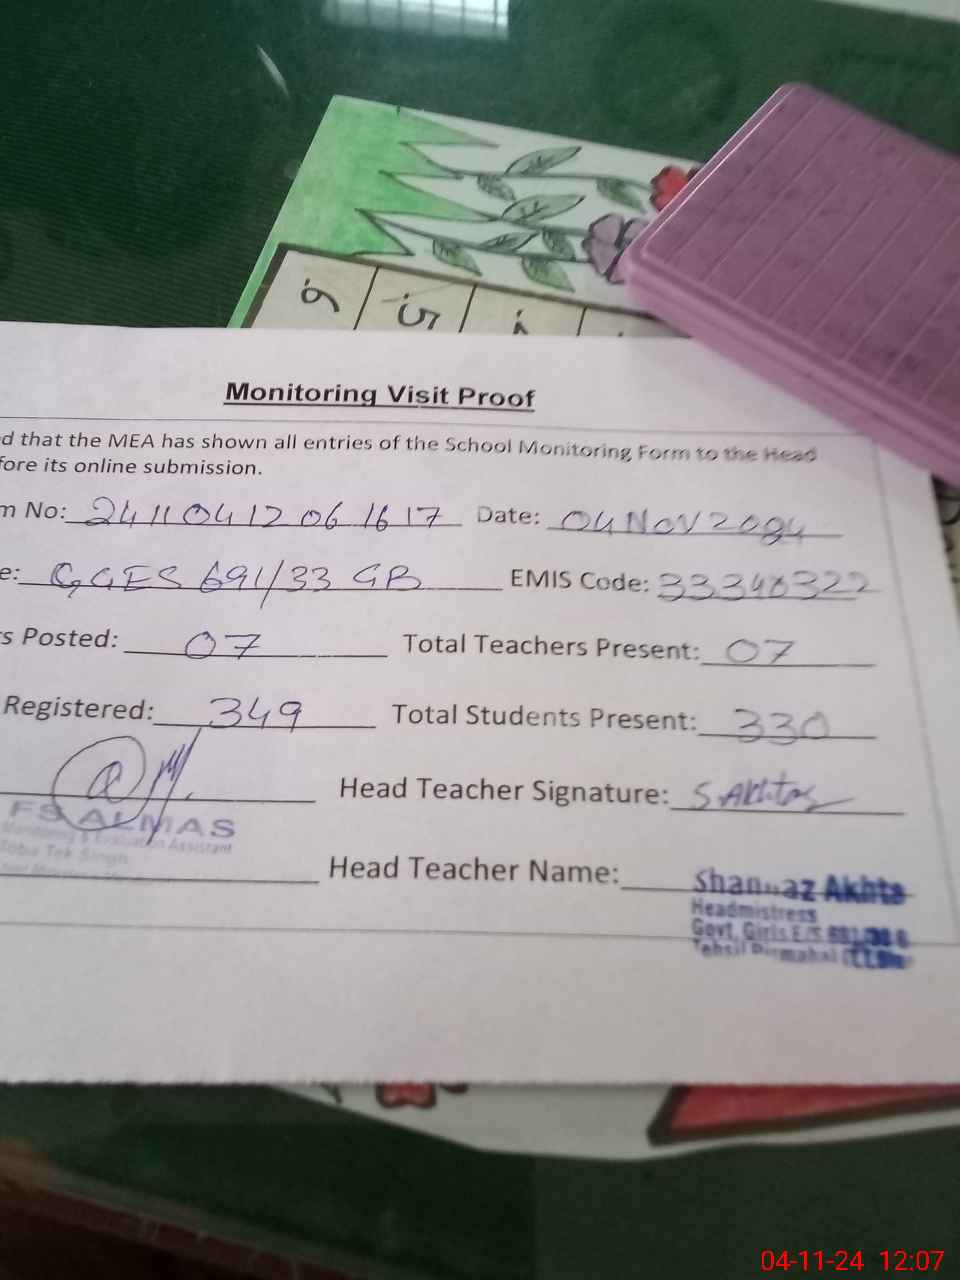 ق س
Monitoring Visit Proof
d that the MEA has shown all entries of the School Monitoring Form to the Head
fore its online submission.
m No: 24110412061617 Date: 04 Nov 2024
e: GGES 691/33 GB EMIS Code: 33340322
s Posted: 07 Total Teachers Present: 07
Registered: 349 Total Students Present: 330
Head Teacher Signature: S.Akhtar
ALMAS
Monitoring & Evaluation Assistant
Toba Tek Singh
Head Teacher Name: Shahnaz Akhta
Headmistress
Govt. Girls E/S 691/
Tehsil Pirmahal
04-11-24 12:07